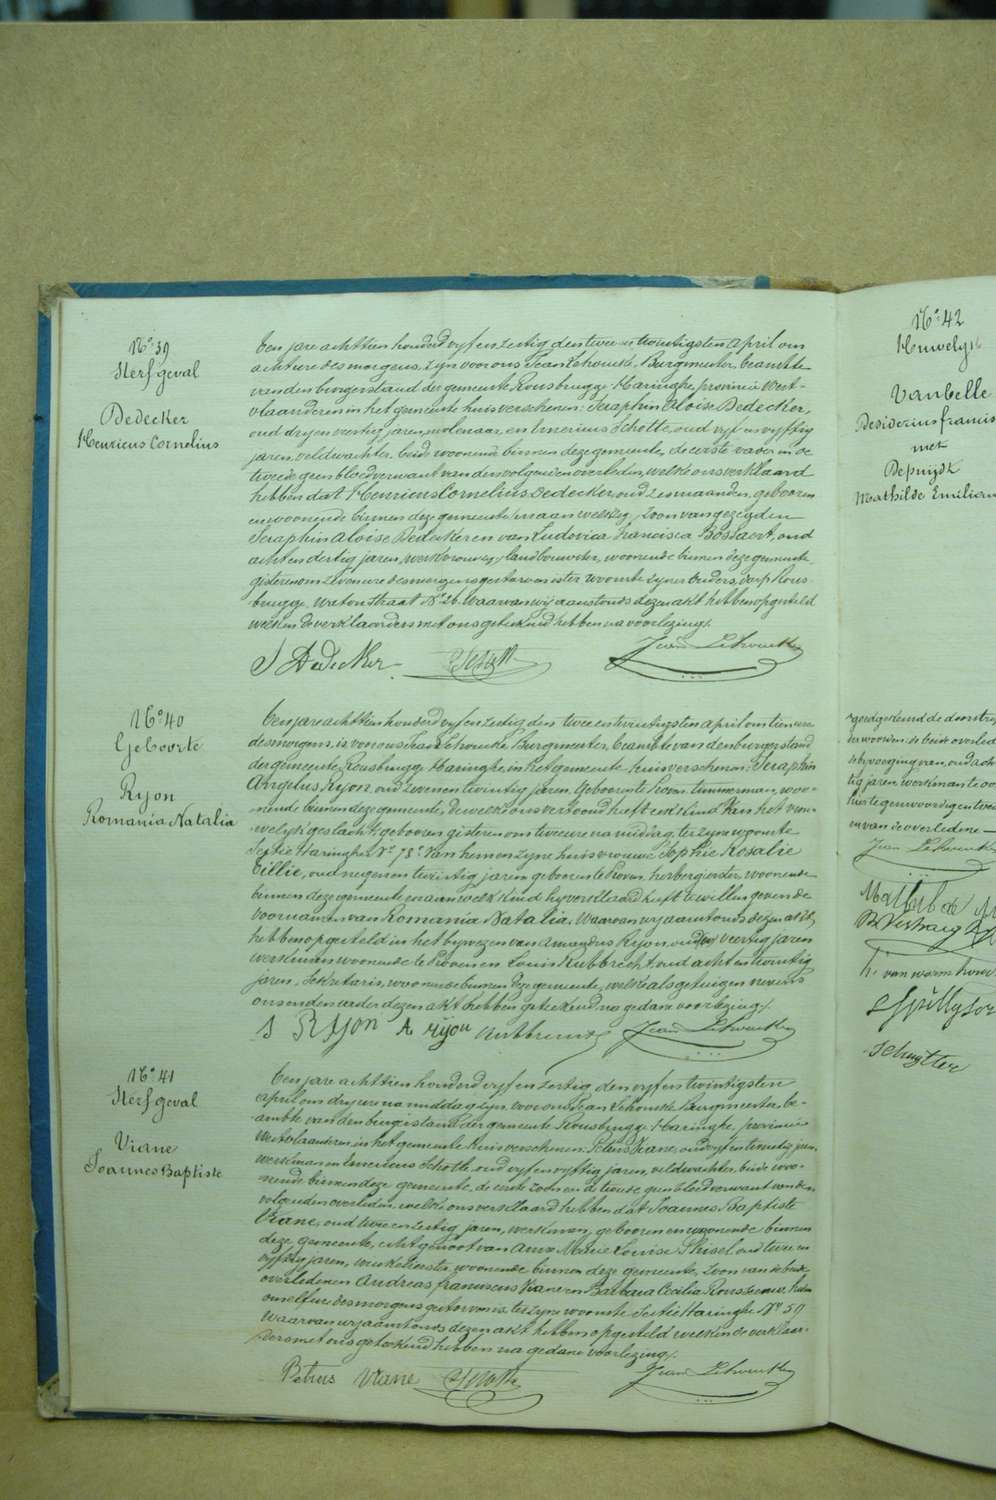 N° 39
Sterfgeval
Dedecker
Henricus Cornelius
Een jare achttien honderd vyf en zestig den twee en twintigsten april om
acht ure des morgens, zyn voor ons Jean Lehoucke, Burgmeester, beambte
van den burgerstand der gemeente Rousbrugge-Haringhe, provincie West-
vlaanderen in het gemeente huis verschenen: Seraphin Aloise Dedecker,
oud dry en veertig jaren, molenaar, en Emericus Schotte, oud vyf en vyftig
jaren, veldwachter, beide woonende binnen deze gemeente, de eerste vader en de
tweede geen bloedverwant van den volgenden overleden, welke ons verklaard
hebben dat Henricus Cornelius Dedecker, oud zes maanden, geboren
en woonende binnen deze gemeente, zoon van gezegden
Seraphin Aloise Dedecker en van Ludovica Francisca Bossaert, oud
acht en dertig jaren, landbouwster, woonende binnen deze gemeente,
gisteren om zeven ure des morgens gestorven is ter woonste zyner ouders, dorp Rous-
brugge, waterstraat N° 26. Waarvan wy aanstonds dezen akt hebben opgesteld
welken de verklaarders met ons geteekend hebben na voorlezing.
S Dedecker Schotte Jean Lehoucke
N° 40
Geboorte
Ryon
Romania Natalia
Een jare achttien honderd vyf en zestig den twee en twintigsten april om tien ure
des morgens, is voor ons Jean Lehoucke Burgmeester, beambte van den burgerstand
der gemeente Rousbrugge-Haringhe, in het gemeente huis verschenen: Seraphin
Angelus Ryon, oud zeven en twintig jaren, geboren te Proven, timmerman, woo-
nende binnen deze gemeente, dewelke ons vertoond heeft een kind van het vrou-
welyk geslacht, geboren gisteren om twee ure na middag, ter zyne woonste
Sectie Haringhe N° 78, van hem en zyne huisvrouwe Sophie Rosalie
Tillie, oud negen en twintig jaren geboren te Proven, herbergierster, woonende
binnen deze gemeente en aan welk kind hy verklaard heeft te willen geven de
voornamen van Romania Natalia. Waarvan wy aanstonds dezen akt
hebben opgesteld in het bywezen van Amandus Ryon, oud veertig jaren
werkman woonende te Proven en Louis Rubbrecht, oud acht en twintig
jaren, Sekretaris, woonende binnen deze gemeente, welke als getuigen nevens
ons en den vader dezen akt hebben geteekend na gedane voorlezing.
S Ryon A ryon Rubbrecht Jean Lehoucke
N° 41
Sterfgeval
Viane
Joannes Baptiste
Een jare achttien honderd vyf en zestig, den vyf en twintigsten
april om dry ure na middag zyn voor ons Jean Lehoucke Burgmeester, be-
ambte van den burgerstand der gemeente Rousbrugge-Haringhe, provincie
Westvlaanderen, in het gemeente huis verschenen: Petrus Viane, oud vyf en twintig jaren,
werkman en Emericus Schotte, oud vyf en vyftig jaren, veldwachter, beide woo-
nende binnen deze gemeente, de eerste zoon en de tweede geen bloedverwant van den
volgenden overleden, welke ons verklaard hebben dat Joannes Baptiste
Viane, oud twee en zestig jaren, werkman, geboren en woonende binnen
deze gemeente, echtgenoot van Anna Marie Louise Thisel, oud twee en
vyftig jaren, winkelierster, woonende binnen deze gemeente, zoon van de beide
overledenen Andreas franciscus Viane en Barbara Cecilia Rousseeuw, heden
om elf ure des morgens gestorven is, ter zyne woonste Sectie Haringhe N° 59
Waarvan wy aanstonds dezen akt hebben opgesteld welken de verklaar-
ders met ons geteekend hebben na gedane voorlezing.
Petrus Viane Schotte Jean Lehoucke
N° 42
Huwelyk
Vanbelle
Desiderius francis
met
Depuydt
Mathilde Emilian
en van de overledene
Jean Lehoucke